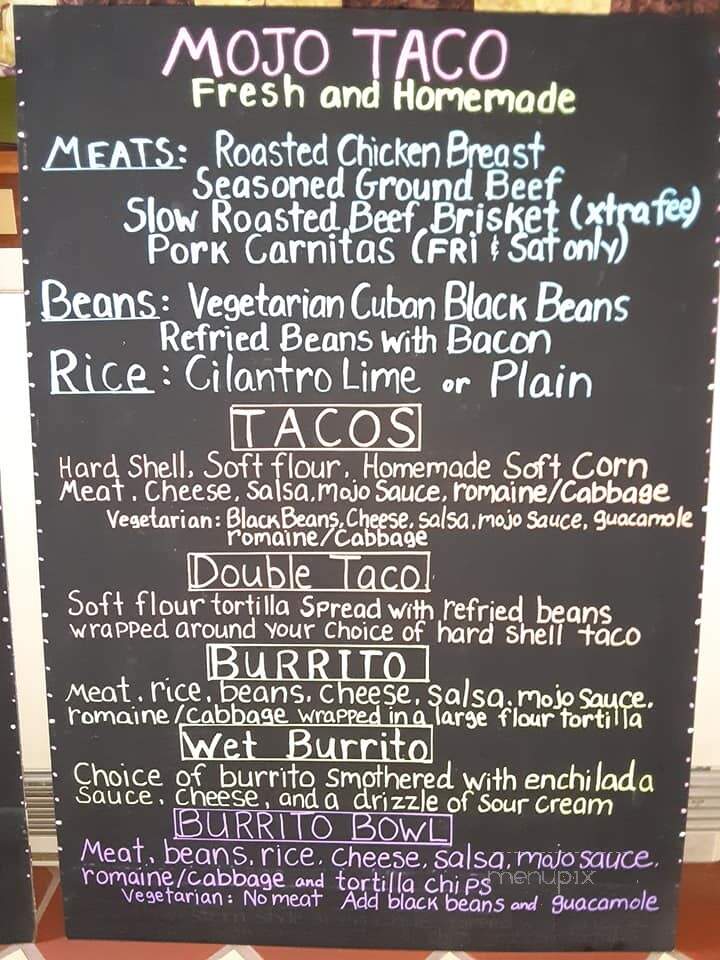 MOJO TACO
Fresh and Homemade
MEATS: Roasted Chicken Breast
Seasoned Ground Beef
Slow Roasted Beef Brisket (xtra fee)
Pork Carnitas (FRI & Sat only)
Beans: Vegetarian Cuban Black Beans
Refried Beans with Bacon
Rice: Cilantro Lime or Plain
TACOS
Hard Shell, Soft flour, Homemade Soft Corn
Meat, Cheese, Salsa, Mojo Sauce, romaine/Cabbage
Vegetarian: Black Beans, Cheese, salsa, mojo Sauce, guacamole
romaine/Cabbage
Double Taco
Soft flour tortilla Spread with refried beans
wrapped around your choice of hard shell taco
BURRITO
Meat, rice, beans, cheese, salsa, mojo sauce,
romaine/cabbage wrapped in a large flour tortilla
Wet Burrito
Choice of burrito smothered with enchilada
Sauce, cheese, and a drizzle of Sour Cream
BURRITO BOWL
Meat, beans, rice, cheese, salsa, mojo sauce,
romaine/cabbage and tortilla chips
menupix
Vegetarian: No meat Add black beans and guacamole